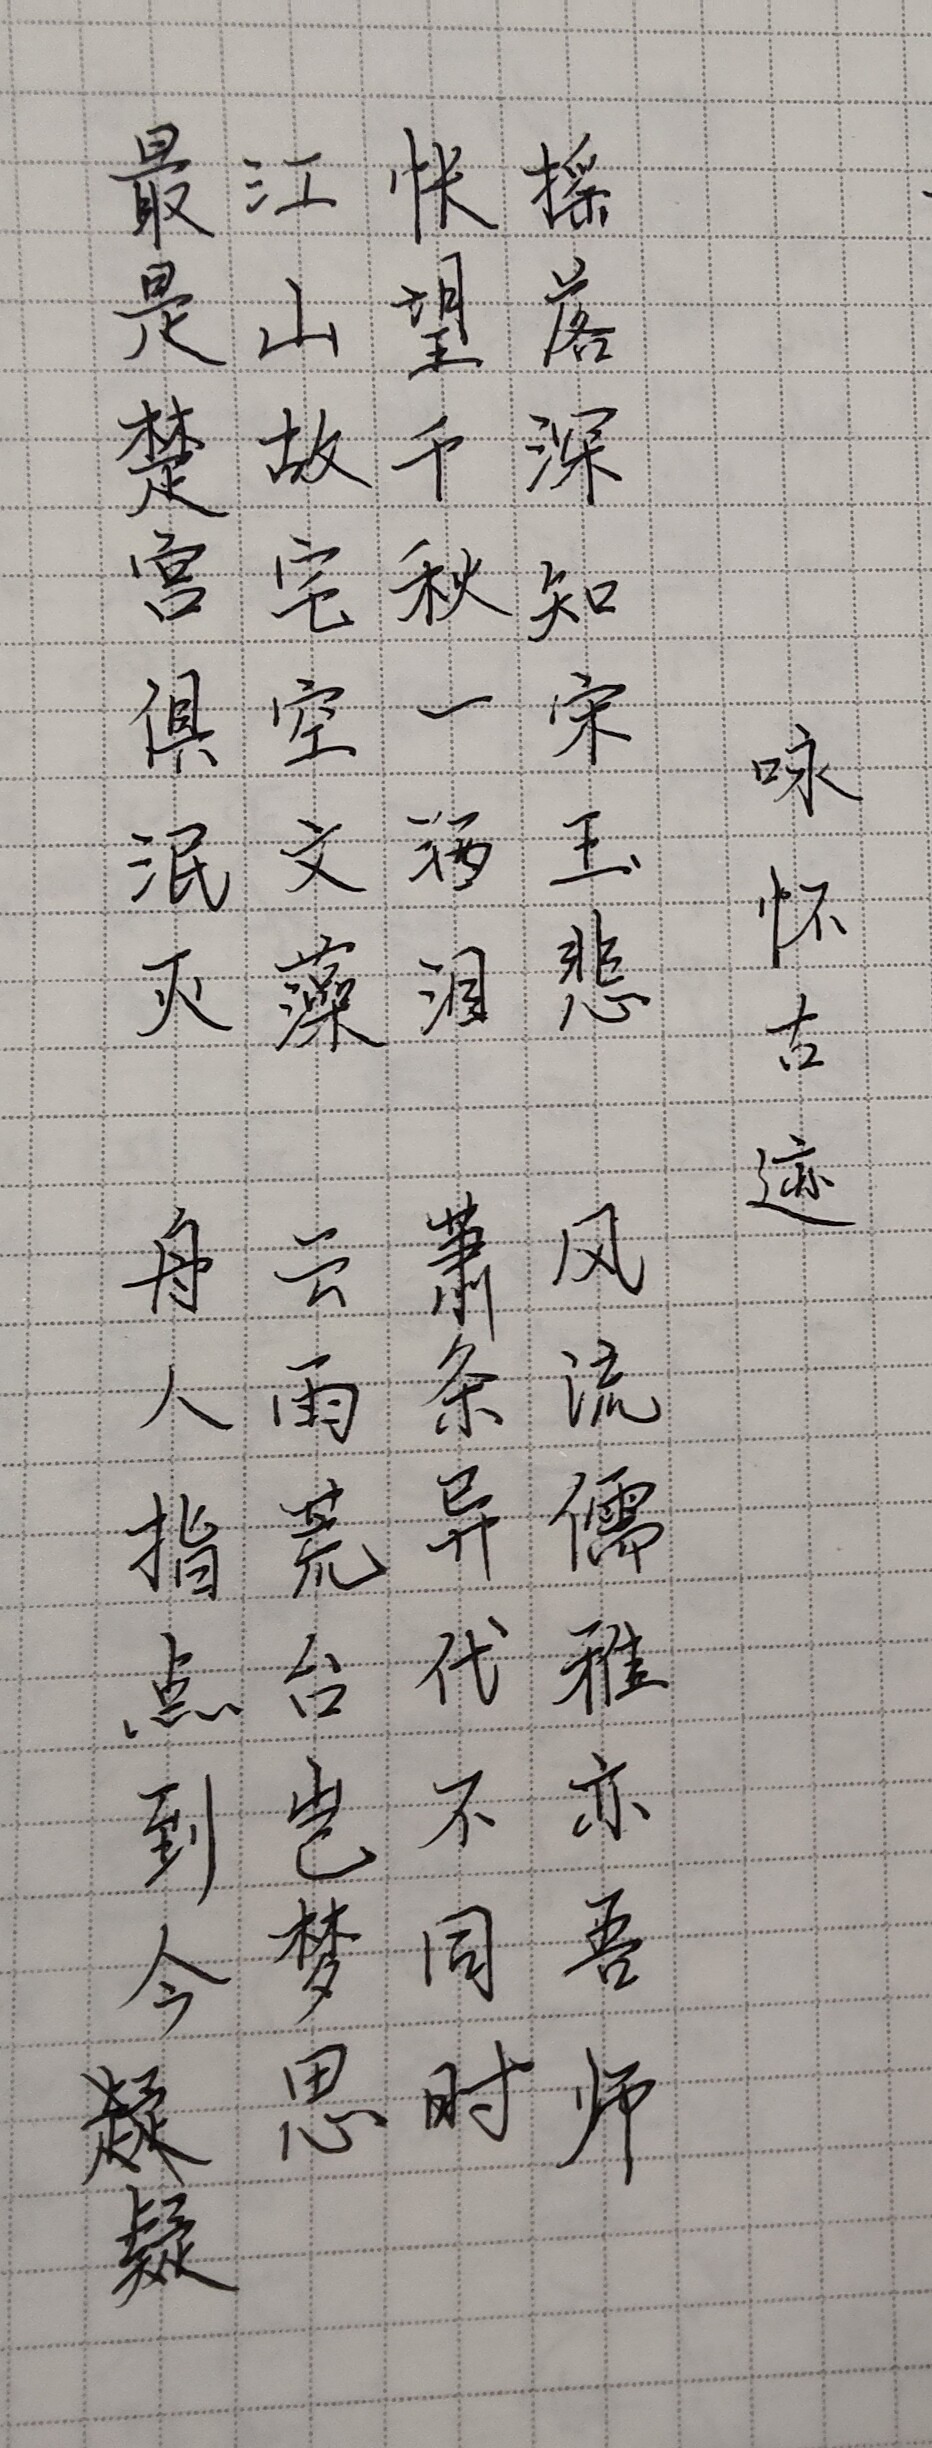 咏怀古迹
摇落深知宋玉悲 风流儒雅亦吾师
怅望千秋一洒泪 萧条异代不同时
江山故宅空文藻 云雨荒台岂梦思
最是楚宫俱泯灭 舟人指点到今疑